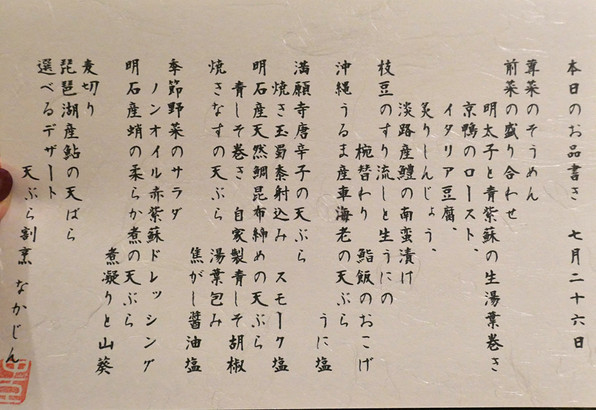 本日のお品書き 七月二十六日
蓴菜のそうめん
前菜の盛り合わせ
明太子と青紫蘇の生湯葉巻き
京鴨のロースト、
イタリア豆腐、
炙りしんじょう、
淡路産鱧の南蛮漬け
枝豆のすり流しと生うにの
椀替わり 鮨飯のおこげ
沖縄うるま産車海老の天ぷら
うに塩
満願寺唐辛子の天ぷら
焼き玉蜀黍射込み スモーク塩
明石産天然鯛昆布締めの天ぷら
青しそ巻き 自家製青しそ胡椒
焼きなすの天ぷら 湯葉包み
焦がし醤油塩
季節野菜のサラダ
ノンオイル赤紫蘇ドレッシング
明石産蛸の柔らか煮の天ぷら
煮凝りと山葵
麦切り
琵琶湖産鮎の天ぱら
選べるデザート
天ぷら割烹 なかじん